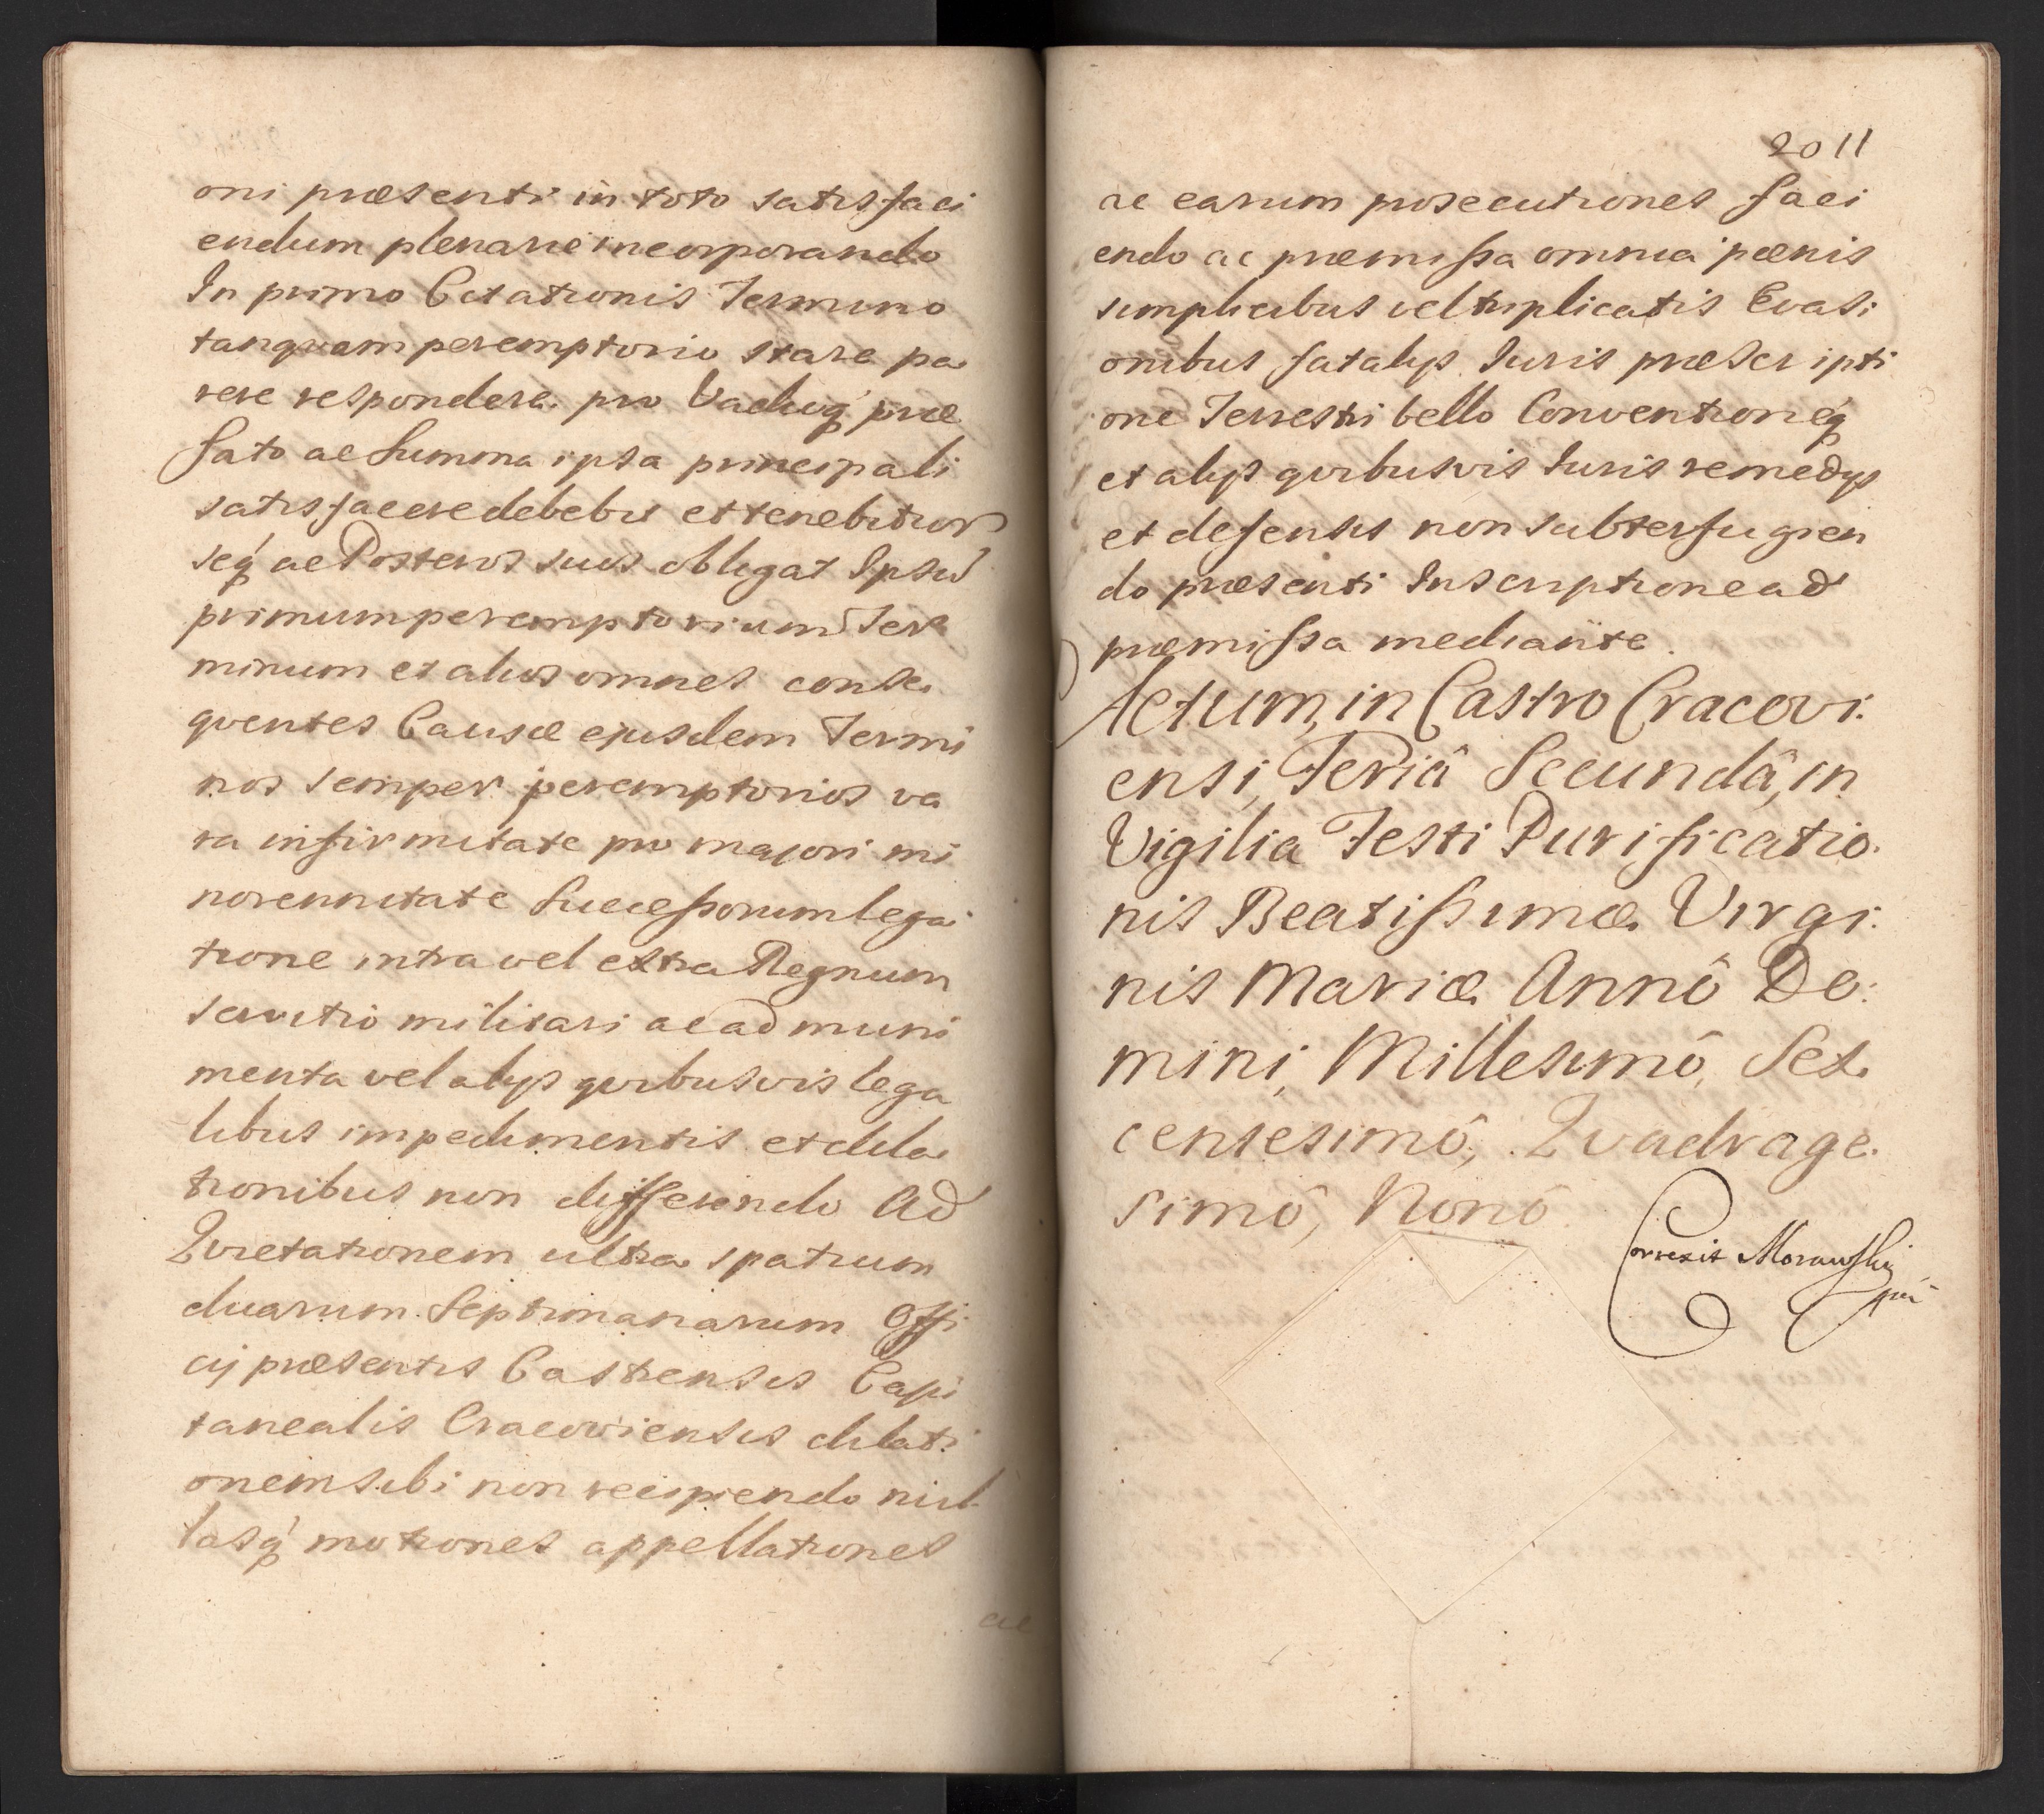 oni præsenti in toto satisfaci
endum plenarie incorporando
In primo Citationis Termino
tanqvam peremptorio stare pa
rere respondere pro Vadioq́ præ
fato ac Summa ipsa principali
satisfacere debebit et tenebitur
seq́ ac Posteros suos obligat Ipsū
primum peremptorium Ter
minum et alios omnes conse
qventes Causæ ejusdem Termi
nos semper peremptorios ve
ra infirmitate pro majori mi
norennitate Successorum lega
tione intra vel extra Regnum
servitio militari ac ad muni
menta vel alijs qvibusvis lega
libus impedimentis et dila
tionibus non differendo Ad
Qvietationem ultra spatium
duarum Septimanarum Offi
cij præsentis Castrensis Capi
tanealis Cracoviensis dilati
onem sibi non recipiendo nul
lasq́ motiones appellationes
ac
2011
ac earum prosecutiones faci
endo ac præmissa omnia pænis
simplicibus vel triplicatis Evasi
onibus fatalijs Juris præscripti
one Terrestri bello Conventioneq́
et alijs qvibusvis Juris remedijs
et defensis non subterfugien
do præsenti Inscriptione ad
præmissa mediante.
Actum, in Castro Cracovi:
ensi, Feriâ Secundâ, in
Vigilia Festi Purificatio:
nis Beatissimæ Virgi:
nis Mariæ Annô Do:
mini, Millesimô, Sex
centesimô, Qvadrage:
simô, Nonô.
Correxit Morawski
mp